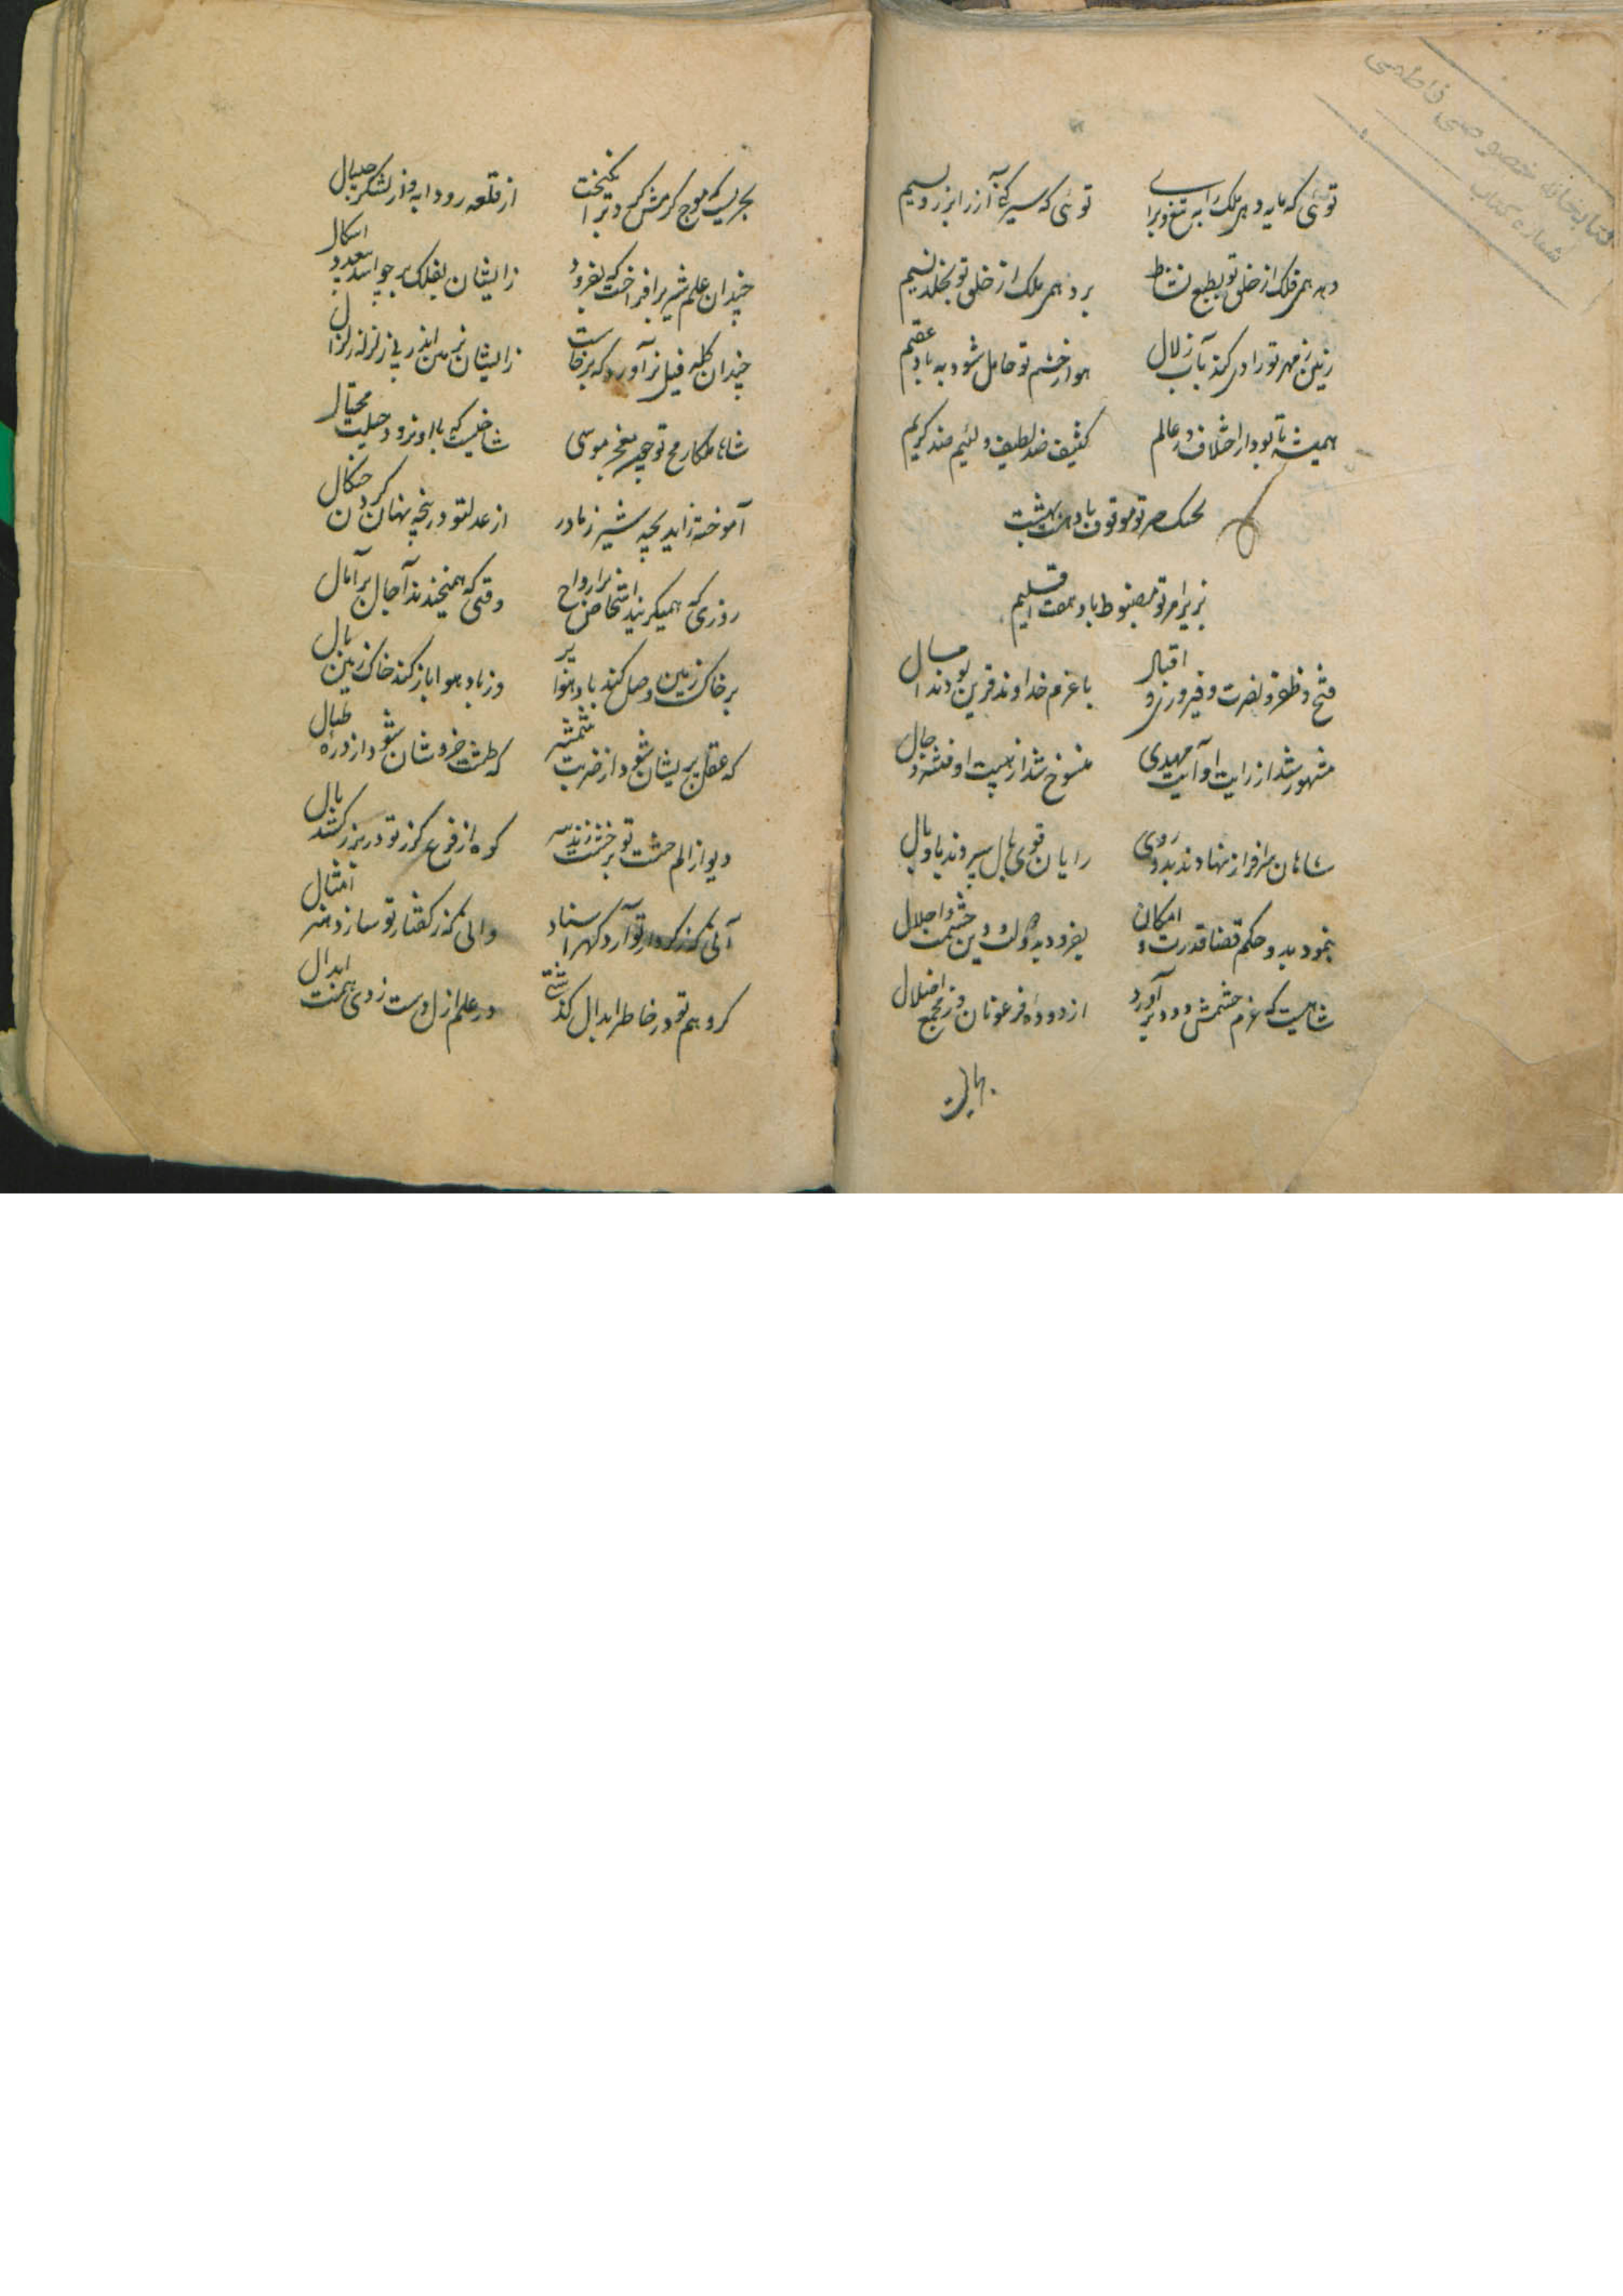 کتابخانه خصوصی فاطمی
شماره کتاب
توئی که مایه دهد ملک را به تیغ و برای توئی که سیر کند آز را بزر و بسیم
دهد همی فلک از خلق تو بطبع نشاط برد همی ملک از خلق تو بخلد نسیم
زمین ز مهر تو رادی کند بآب زلال هوا ز خشم تو حامل شود به باد عقیم
همیشه تا بود از اختلاف در عالم کثیف ضد لطیف و لئیم ضد کریم
بحکمت تو موقوف باد هشت بهشت
بزیر امر تو مضبوط باد هفت اقلیم
فتح و ظفر و نصرت و فیروزی و اقبال با عزم خداوند قرین بودند امسال
مشهور شد از رایت او آیت مهدی منسوخ شد از هیبت او فتنه دجال
شاهان سرافراز نهادند بدو روی رایان قوی بال سپردند باو بال
بنمود بدو حکم قضا قدرت و امکان بفزود بدو ملک و دین حشمت و اجلال
شاهیست که عزم حشمش دود برآورد از دوده فرعونان وز مجمع اضلال
بحریست که موج کرمش گرد برانگیخت از قلعه رودابه و از لشکر جیپال
چندان علم شیر برافراخت که بفزود زایشان بفلک بر چو اسد بیعدد اشکال
چندان گله فیل برآورد که برخاست زایشان بزمین اندر پی زلزله زلزال
شاها ملکا رمح تو چو معجز موسی شاخیست که با او نرود حیلت محتال
آموخته زاید بچه شیر ز مادر از عدل تو در پنجه نهان کردن چنگال
روزی که همی گریند اشخاص بر ارواح وقتی که همی خندند آجال بر آمال
بر خاک زمین وصل کند باد هوا پر وز باد هوا باز کند خاک زمین بال
گه عقل پریشان شود از ضربت شمشیر گه طمث خروشان شود از دره طبال
دیو از الم حشمت تو بر خشت زند سر کوه از فزع گرز تو در بزر کشد بال
آنی که ز کردار تو آرد گهر اسناد وانی که ز گفتار تو سازد هنر امثال
گر وهم تو در خاطر ابدال گذشتی در علم ازل دست زدی همت ابدال